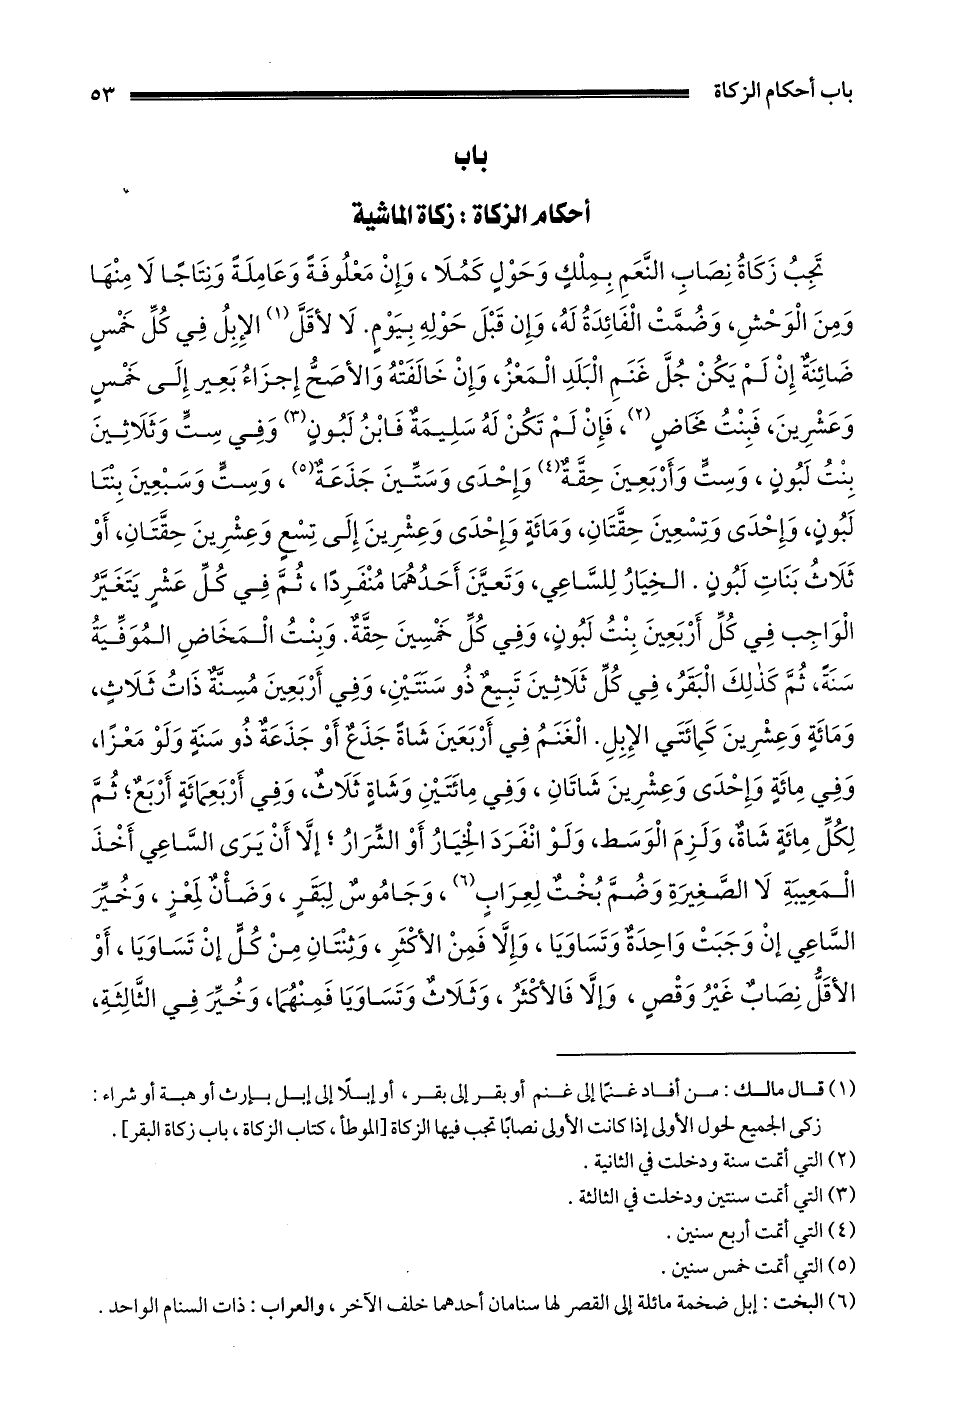 باب أحكام الزكاة ٥٣
باب
أحكام الزكاة : زكاة الماشية
تَجِبُ زَكَاةُ نِصَابِ النَّعَمِ بِمِلْكٍ وَحَوْلٍ كَمُلَا ، وَإِنْ مَعْلُوفَةً وَعَامِلَةً وَنِتَاجًا لَا مِنْهَا
وَمِنَ الْوَحْشِ، وَضُمَّتْ الْفَائِدَةُ لَهُ، وَإِن قَبْلَ حَوْلِهِ بِيَوْمٍ. لَا لأَقَلَّ(١) الإِبِلُ فِي كُلِّ خَمْسٍ
ضَائِنَةٌ إِنْ لَمْ يَكُنْ جُلَّ غَنَمِ الْبَلَدِ الْمَعْزُ، وَإِنْ خَالَفَتْهُ وَالأَصَحُّ إِجزَاءُ بَعِيرٍ إِلَى خَمْسٍ
وَعَشْرِينَ، فَبِنْتُ مَخَاضٍ(٢)، فَإِنْ لَمْ تَكُنْ لَهُ سَلِيمَةٌ فَابْنُ لَبُونٍ(٣) وَفِي سِتٍّ وَثَلَاثِينَ
بِنْتُ لَبُونٍ ، وَسِتٍّ وَأَرْبَعِينَ حِقَّةٌ(٤) وَإِحْدَى وَسَتِّينَ جَذَعَةٌ(٥) ، وَسِتٍّ وَسَبْعِينَ بِنْتَا
لَبُونٍ، وَإِحْدَى وَتِسْعِينَ حِقَّتَانِ، وَمَائَةٍ وَإِحْدَى وَعِشْرِينَ إِلَى تِسْعٍ وَعِشْرِينَ حِقَّتَانِ، أَوْ
ثَلَاثُ بَنَاتِ لَبُونٍ . الخِيَارُ لِلسَّاعِي، وَتَعيَّنَ أَحَدُهُمَا مُنْفَرِدًا ، ثُمَّ فِي كُلِّ عَشْرٍ يَتَغَيَّرُ
الْوَاجِب فِي كُلِّ أَرْبَعِينَ بِنْتُ لَبُونٍ، وَفِي كُلِّ خَمْسِينَ حِقَّةٌ. وَبِنْتُ الْمَخَاضِ المُوَفِّيَةُ
سَنَةً، ثُمَّ كَذٰلِكَ الْبَقَرُ، فِي كُلِّ ثَلَاثِينَ تَبِيعٌ ذُو سَنَتَيْنِ، وَفِي أَرْبَعِينَ مُسِنَّةٌ ذَاتُ ثَلَاثٍ،
وَمَائَةٍ وَعِشْرِينَ كَمِائَتَي الإِبِلِ. الْغَنَمُ فِي أَرْبَعَينَ شَاةً جَذَعٌ أَوْ جَذَعَةٌ ذُو سَنَةٍ وَلَوْ مَعْزًا،
وَفِي مِائَةٍ وَإِحْدَى وَعِشْرِينَ شَاتَانِ ، وَفِي مِائَتَيْنِ وَشَاةٍ ثَلَاثٌ، وَفِي أَرْبَعِمَائَةٍ أَرْبَعٌ؛ ثُمَّ
لِكُلِّ مِائَةٍ شَاةٌ، وَلَزِمَ الْوَسَط، وَلَوْ انْفَرَدَ الخِيَارُ أَوْ الشِّرَارُ ؛ إِلَّا أَنْ يَرَى السَّاعِي أَخْذَ
الْمَعِيبَةِ لَا الصَّغِيرَةِ وَضُمَّ بُخْتٌ لِعِرَابٍ(٦) ، وَجَامُوسٌ لِبَقَرٍ ، وَضَأْنٌ لِمَعْزٍ ، وَخُيِّرَ
السَّاعِي إِنْ وَجَبَتْ وَاحِدَةٌ وَتَسَاوَيَا ، وَإِلَّا فَمِنْ الأَكْثَرِ ، وَثِنْتَانِ مِنْ كُلٍّ إِنْ تَسَاوَيَا ، أَوْ
الأَقَلُّ نِصَابٌ غَيْرُ وَقْصٍ ، وَإِلَّا فَالأَكْثَرُ ، وَثَلَاثٌ وَتَسَاوَيَا فَمِنْهُمَا، وَخُيِّرَ فِي الثَّالِثَةِ،
(١) قال مالك : من أفاد غنمًا إلى غنم أو بقر إلى بقر ، أو إبلًا إلى إبل بإرث أو هبة أو شراء :
زكى الجميع لحول الأولى إذا كانت الأولى نصابًا تجب فيها الزكاة [الموطأ ، كتاب الزكاة ، باب زكاة البقر] .
(٢) التي أتمت سنة ودخلت في الثانية .
(٣) التي أتمت سنتين ودخلت في الثالثة .
(٤) التي أتمت أربع سنين .
(٥) التي أتمت خمس سنين .
(٦) البخت : إبل ضخمة مائلة إلى القصر لها سنامان أحدهما خلف الآخر ، والعراب : ذات السنام الواحد .